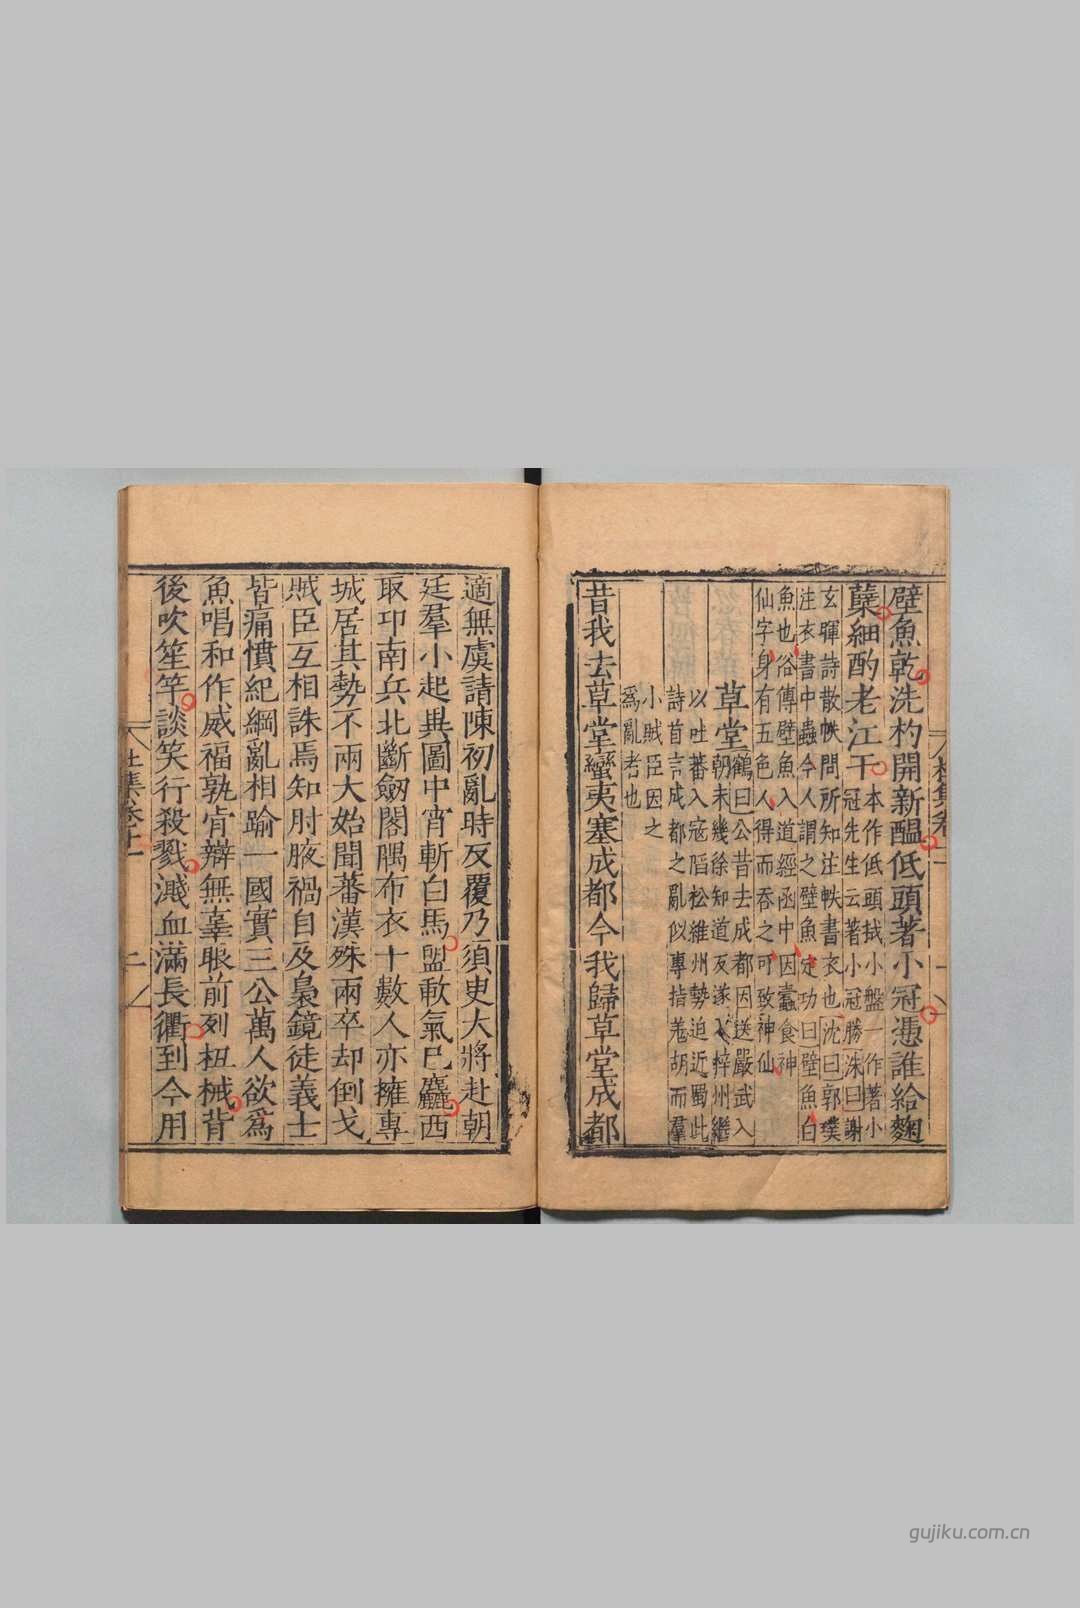 壁魚乾洗杓開新醖低頭著小冠憑誰給麴
糵細酌老江干
本作低頭拭小盤一作著小
冠先生云著小冠勝洙曰謝
玄暉詩散帙問所知注帙書衣也沈曰郭璞
注衣書中蟲今人謂之壁魚定功曰壁魚白
魚也俗傳壁魚入道經函中因蠹食神
仙字身有五色人得而吞之可致神仙
草堂
鶴曰公昔去成都因送嚴武入
朝未幾徐知道反遂入梓州繼
以吐蕃入寇陷松維州勢迫近蜀此
詩首言成都之亂似專指羗胡而羣
小賊臣因之
爲亂者也
昔我去草堂蠻夷塞成都今我歸草堂成都
杜集卷十一
二
適無虞請陳初亂時反覆乃須史大將赴朝
廷羣小起異圖中宵斬白馬盟歃氣已麤西
取卭南兵北斷劒閣隅布衣十數人亦擁專
城居其勢不兩大始聞蕃漢殊兩卒却倒戈
賊臣互相誅焉知肘腋禍自及梟鏡徒義士
皆痛憤紀綱亂相踰一國實三公萬人欲爲
魚唱和作威福孰肯辯無辜眼前列杻械背
後吹笙竽談笑行殺戮濺血滿長衢到今用
杜集卷十一
二
gujiku.com.cn